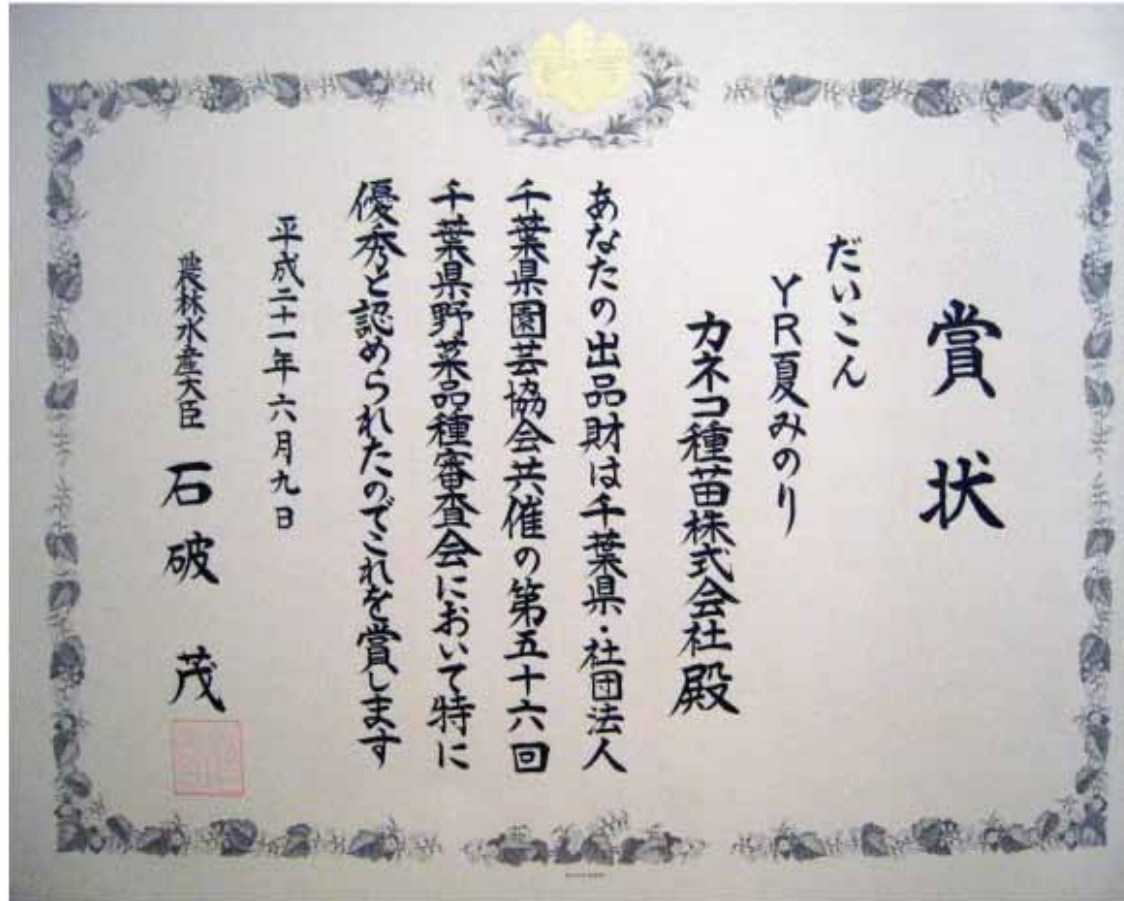 賞状
だいこん
YR夏みのり
カネコ種苗株式会社殿
あなたの出品財は千葉県・社団法人
千葉県園芸協会共催の第五十六回
千葉県野菜品種審査会において特に
優秀と認められたのでこれを賞します
平成二十一年六月九日
農林水産大臣 石破 茂